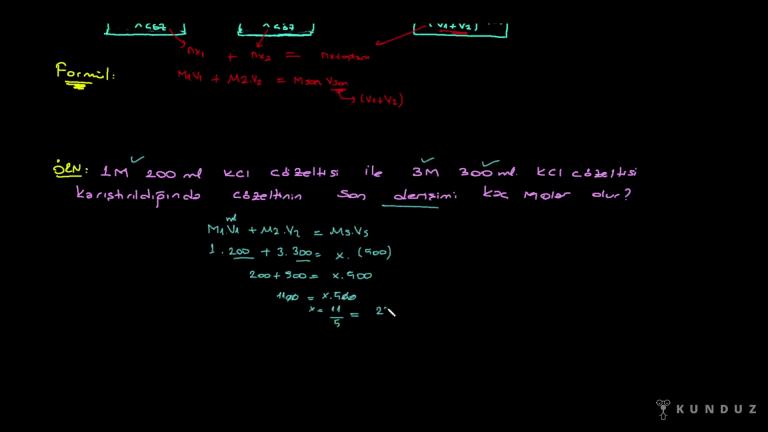 (V1+V2)
nx1 + nx2 =
Formül: M1V1 + M2.V2 = Mson Vson
(V1+V2)
ÖRN: 1M 200 ml KCl çözeltisi ile 3M 300 ml KCl çözeltisi
karıştırıldığında çözeltinin son derişimi kaç molar olur?
ml
M1V1 + M2.V2 = M3.V3
1.200 + 3.300 = x.(500)
200+900 = x.500
1100 = x.500
x = 11/5 = 2
KUNDUZ